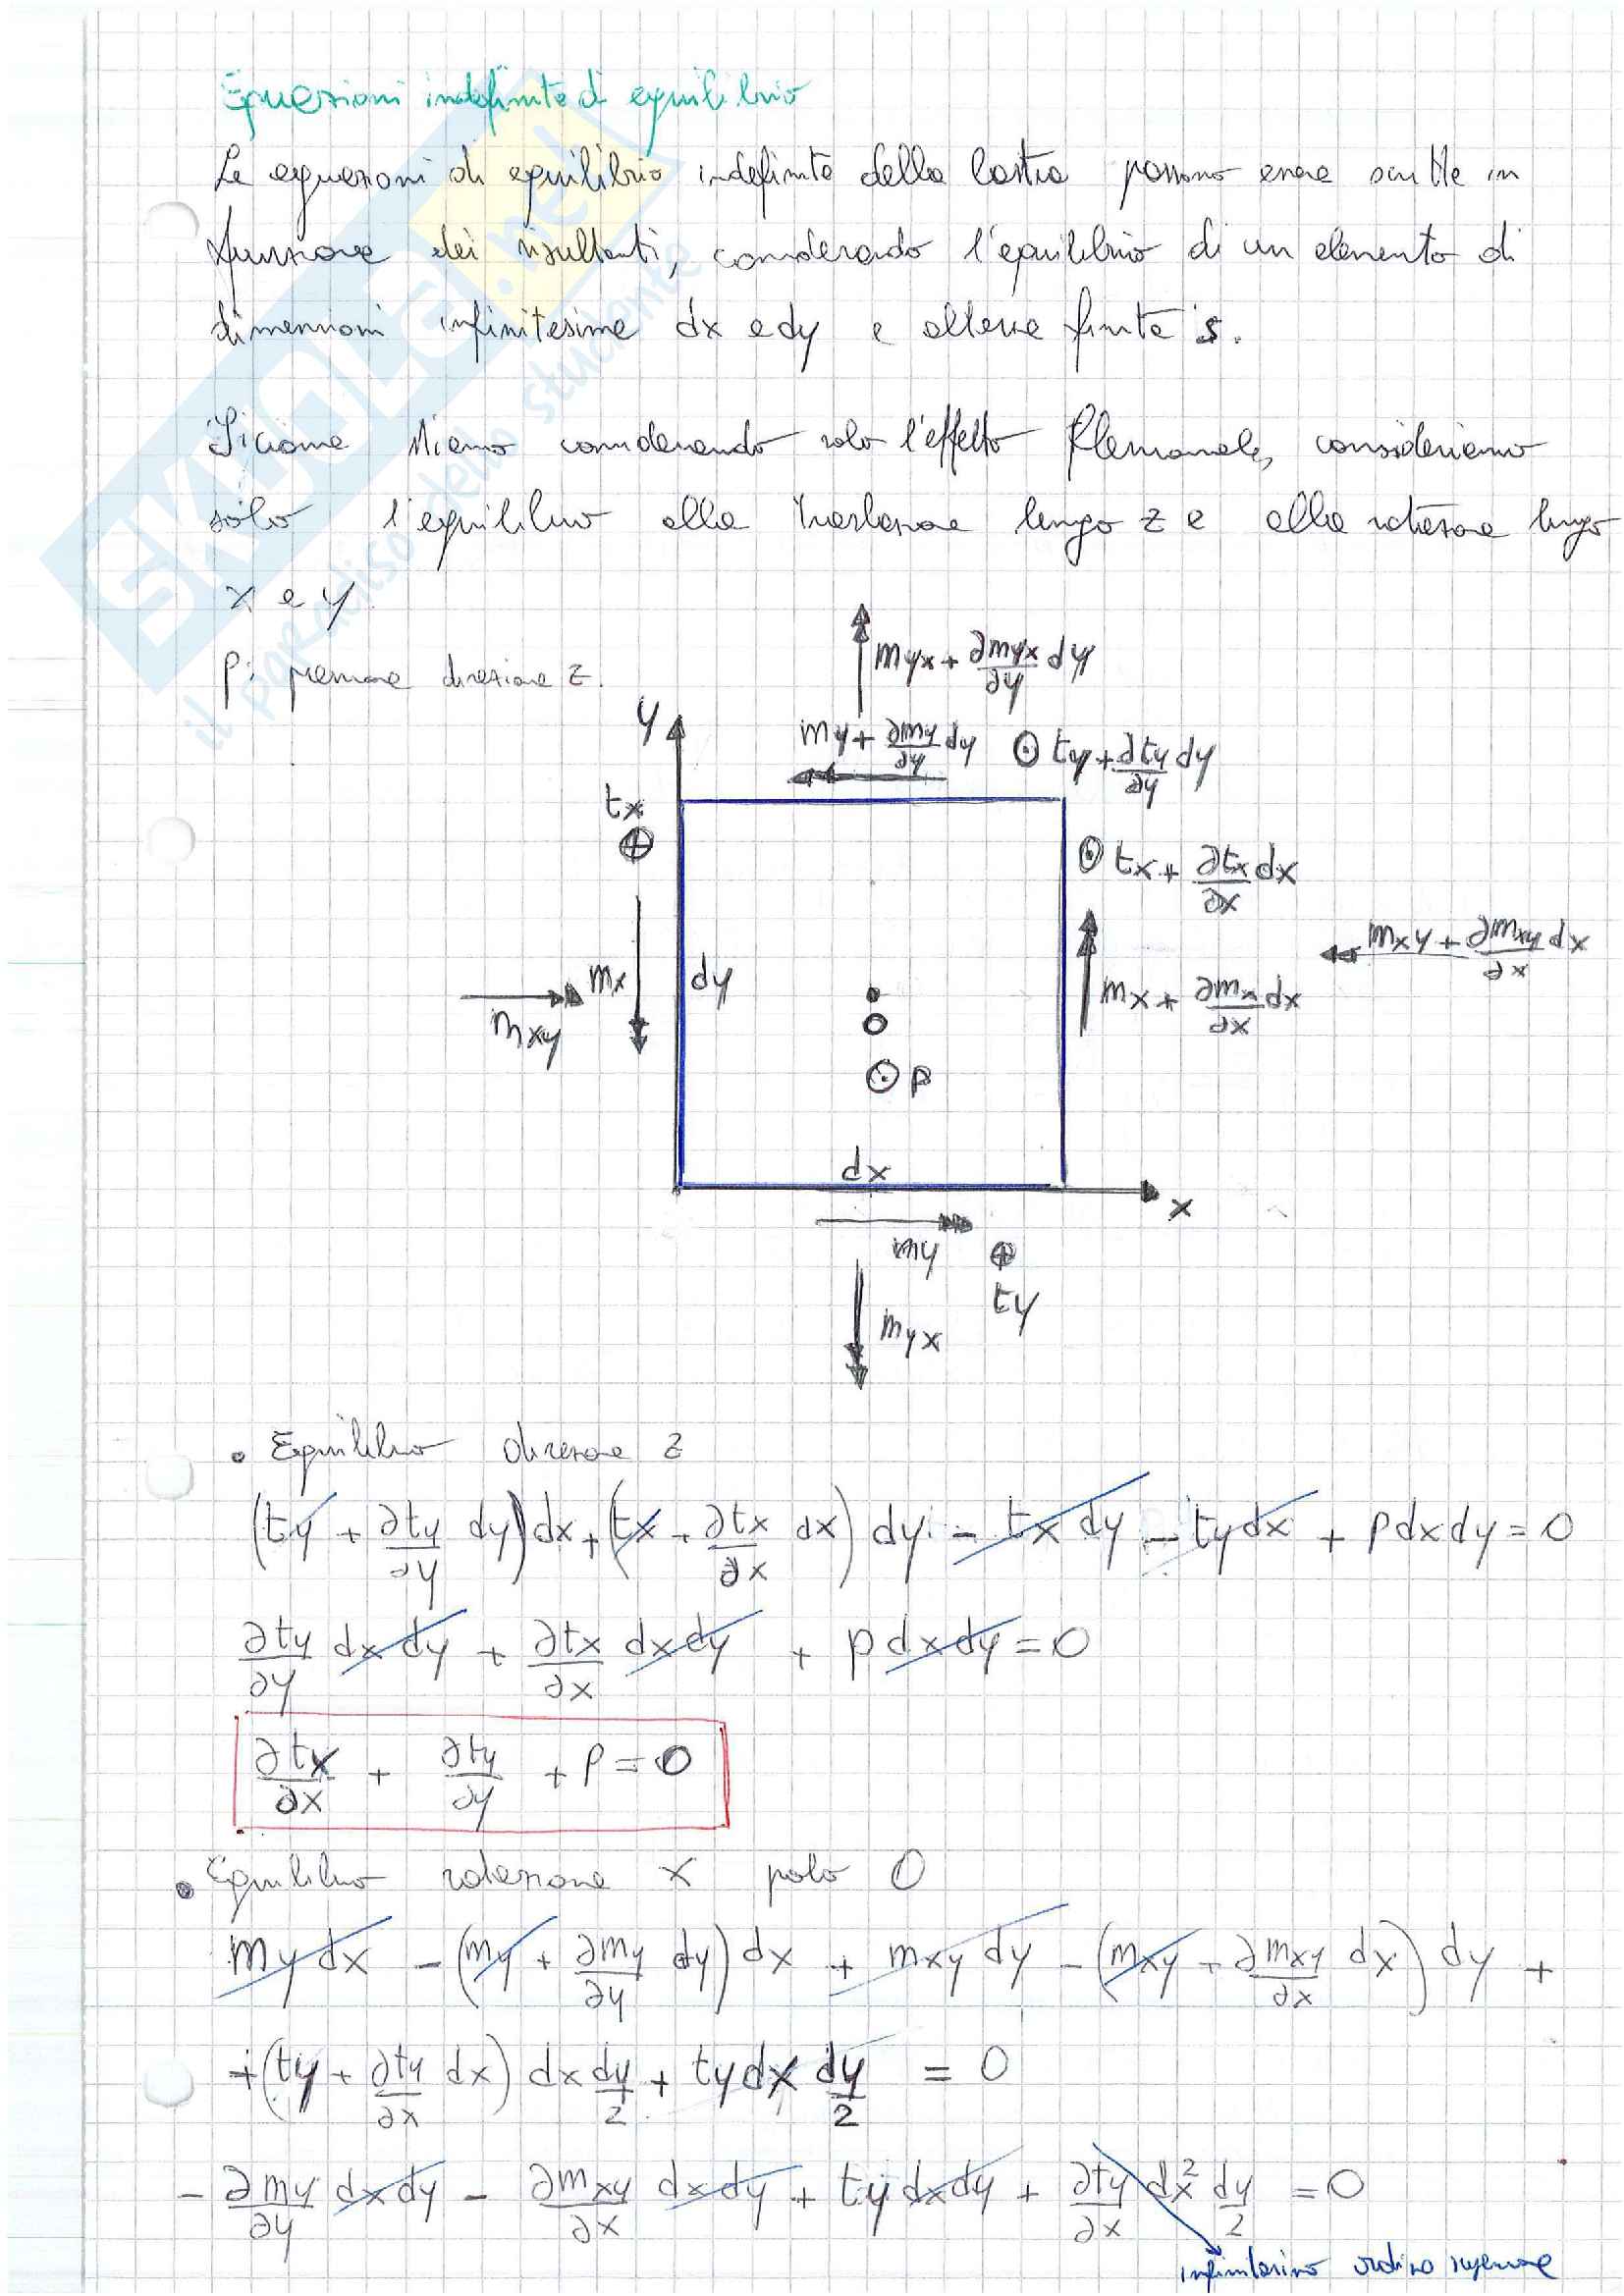 Equazioni indefinite di equilibrio
Le equazioni di equilibrio indefinite della lastra possono essere scritte in
funzione dei risultanti, considerando l'equilibrio di un elemento di
dimensioni infinitesime dx e dy e altezza finita s.
Siccome stiamo considerando solo l'effetto flessionale, consideriamo
solo l'equilibrio alla traslazione lungo z e alla rotazione lungo
x e y
p: pressione direzione z.
SKUOLA.net
il paradiso dello studente
myx + ∂myx/∂y dy
y
my + ∂my/∂y dy
ty + ∂ty/∂y dy
tx
tx + ∂tx/∂x dx
mxy + ∂mxy/∂x dx
mx
dy
mx + ∂mx/∂x dx
mxy
O
p
dx
x
my
ty
myx
• Equilibrio direzione z
(ty + ∂ty/∂y dy) dx + (tx + ∂tx/∂x dx) dy - tx dy - ty dx + p dx dy = 0
∂ty/∂y dx dy + ∂tx/∂x dx dy + p dx dy = 0
∂tx/∂x + ∂ty/∂y + p = 0
• Equilibrio rotazione x polo O
my dx - (my + ∂my/∂y dy) dx + mxy dy - (mxy + ∂mxy/∂x dx) dy +
+ (ty + ∂ty/∂x dx) dx dy/2 + ty dx dy/2 = 0
- ∂my/∂y dx dy - ∂mxy/∂x dx dy + ty dx dy + ∂ty/∂x dx² dy/2 = 0
infinitesimo ordine superiore